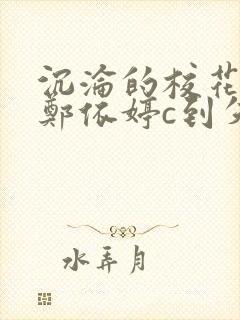 沉沦的校花
鄭依婷c到失
水弄月